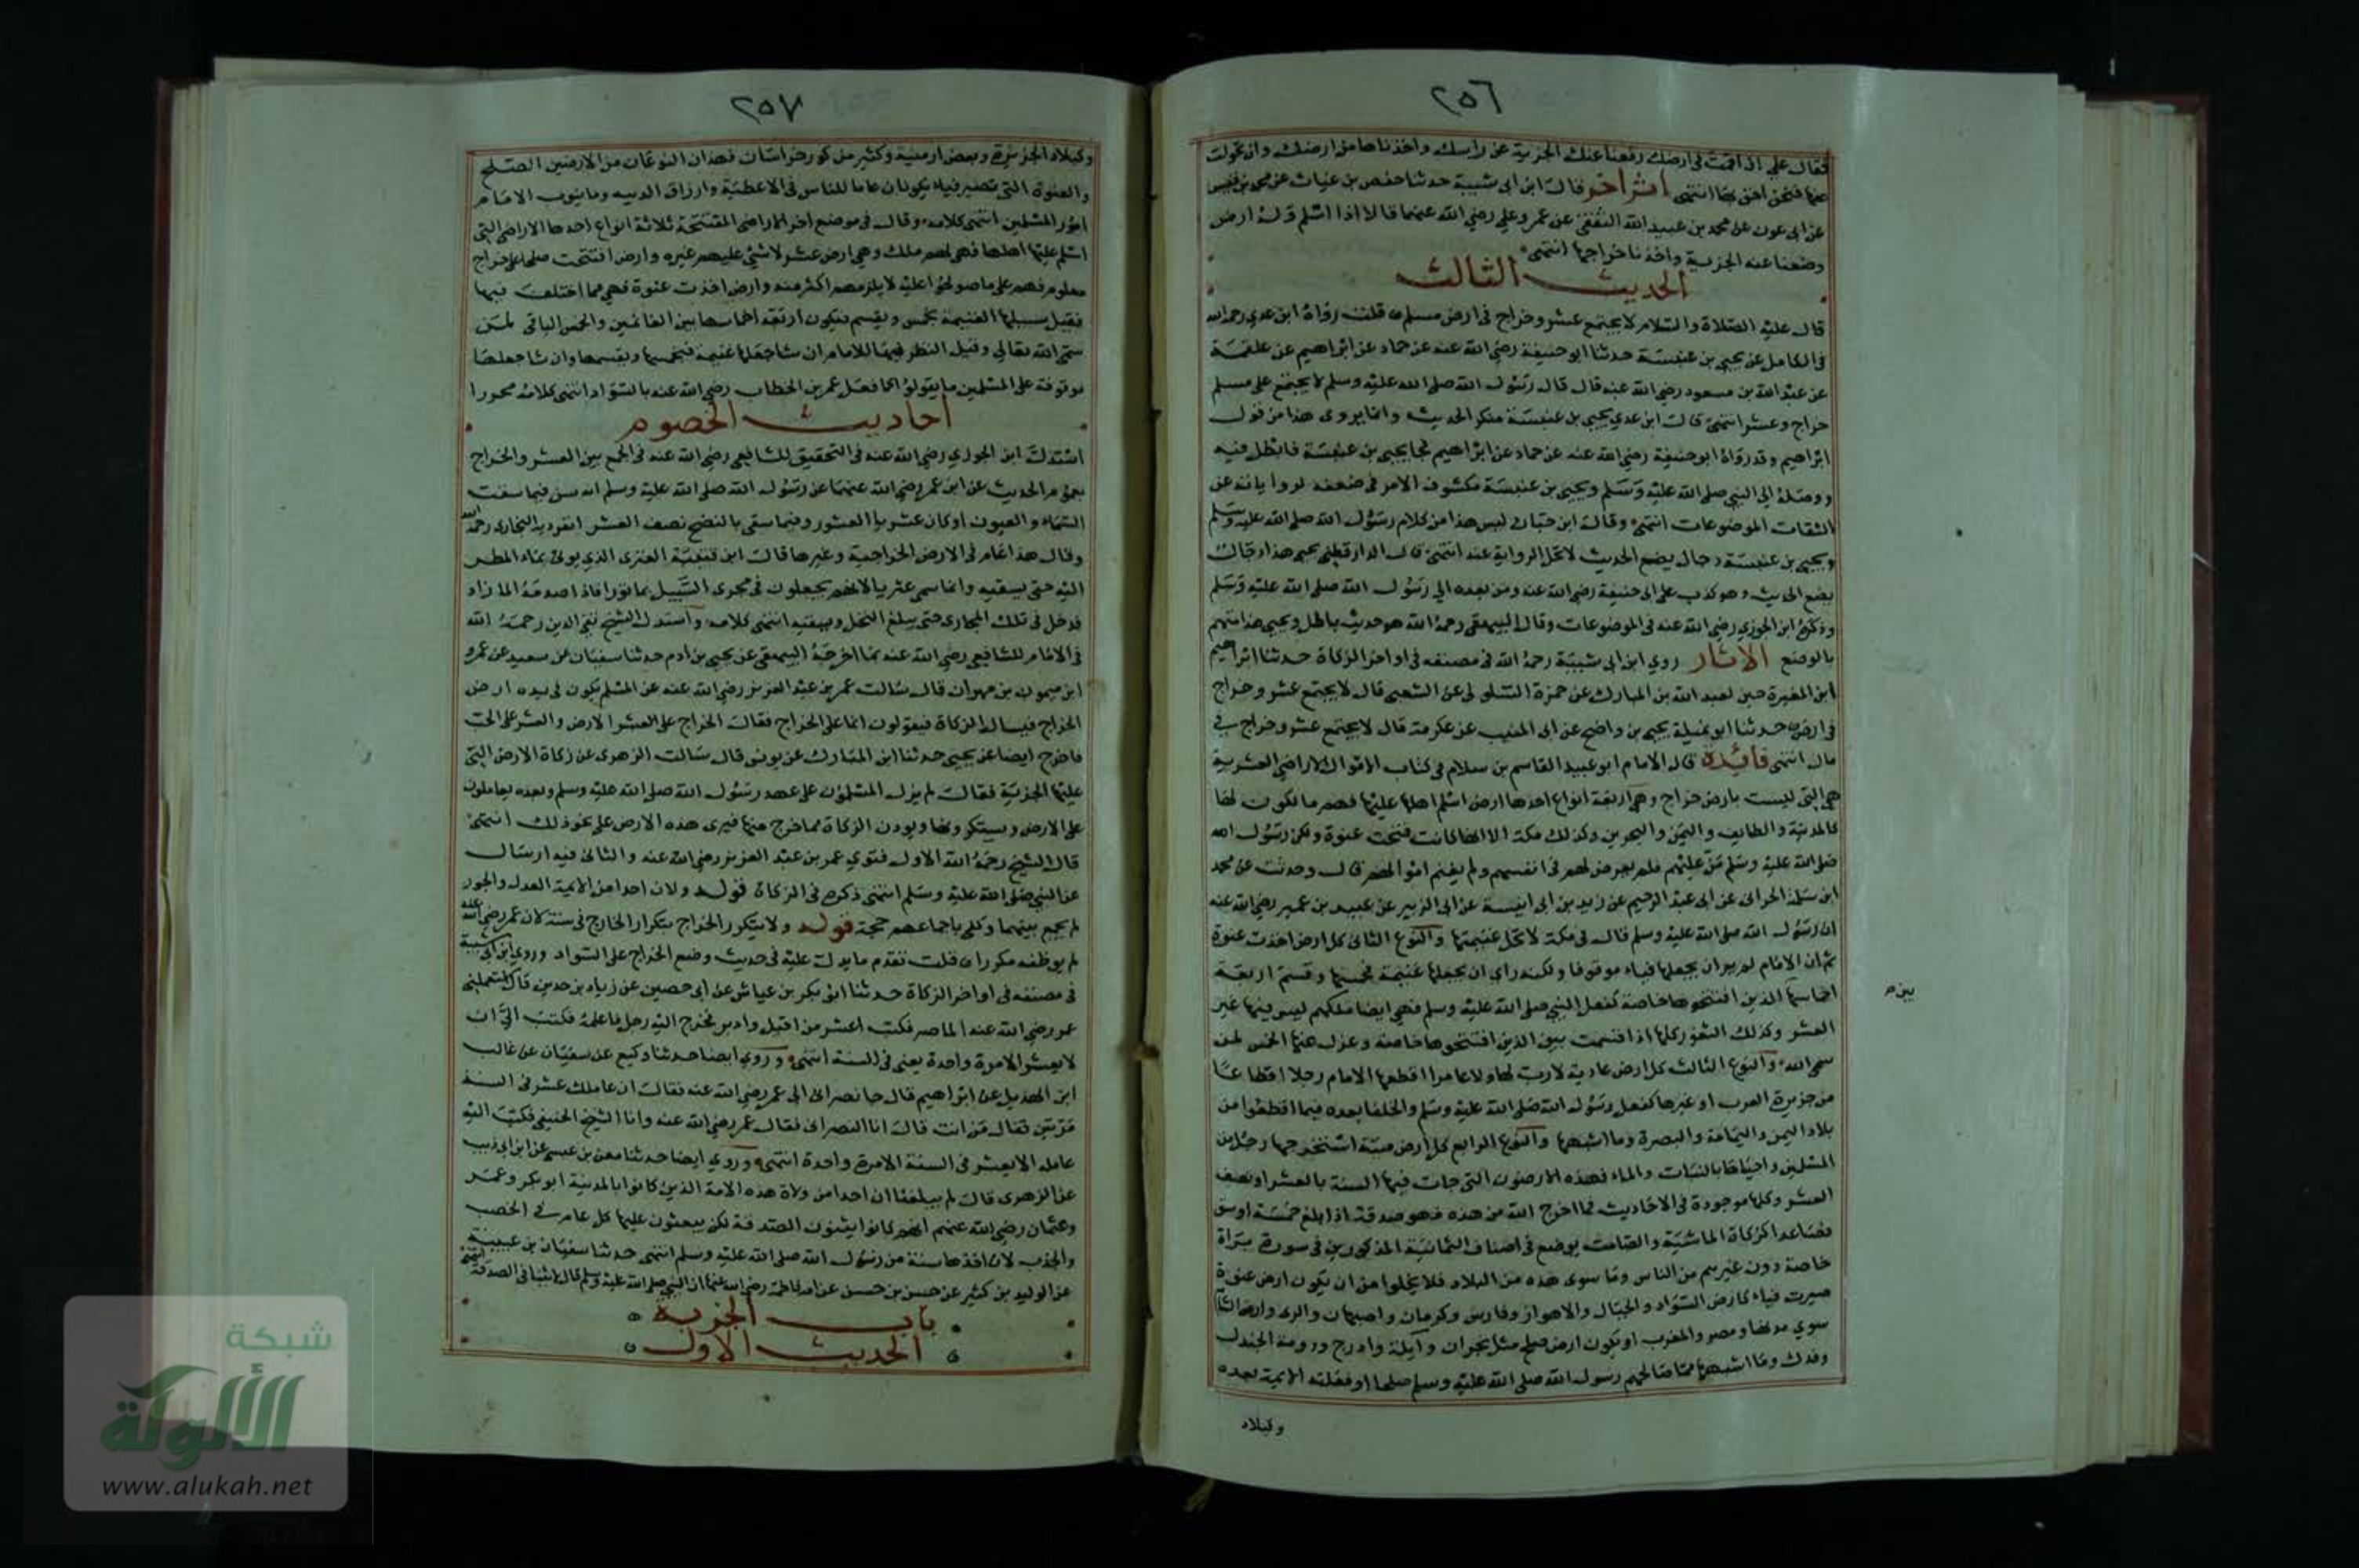 ٢٥٦
فقال علي ان اقمت في ارضك رفعنا عنك الجزية عن راسك واخذناها من ارضك وان تحولت
عنها فنحن احق بها انتهى اثر اخر قال ابن ابي شيبة حدثنا حفص بن غياث عن محمد بن قيس
عن ابي عون عن محمد بن عبيد الله الثقفي عن عمر وعلي رضي الله عنهما قالا اذا اسلم وله ارض
وضعنا عنه الجزية واخذنا خراجها انتهى
الحديث الثالث
قال عليه الصلاة والسلام لا يجتمع عشر وخراج في ارض مسلم قلت رواه ابن عدي رحمه الله
في الكامل عن يحيى بن عنبسة حدثنا ابو حنيفة رضي الله عنه عن حماد عن ابراهيم عن علقمة
عن عبد الله بن مسعود رضي الله عنه قال قال رسول الله صلى الله عليه وسلم لا يجتمع على مسلم
خراج وعشر انتهى قال ابن عدي يحيى بن عنبسة منكر الحديث وانما يروى هذا من قول
ابراهيم وقد رواه ابو حنيفة رضي الله عنه عن حماد عن ابراهيم فجا يحيى بن عنبسة فابطل فيه
ووصله الى النبي صلى الله عليه وسلم ويحيى بن عنبسة مكشوف الامر في ضعفه لرواياته عن
الثقات الموضوعات انتهى وقال ابن حبان ليس هذا من كلام رسول الله صلى الله عليه وسلم
ويحيى بن عنبسة دجال يضع الحديث لا تحل الرواية عنه انتهى قال الدارقطني يحيى هذا دجال
يضع الحديث وهو كذب على ابي حنيفة رضي الله عنه ومن بعده الى رسول الله صلى الله عليه وسلم
وذكره ابن الجوزي رضي الله عنه في الموضوعات وقال البيهقي رحمه الله هو حديث باطل ويحيى هذا متهم
بالوضع الاثار روي ابن ابي شيبة رحمه الله في مصنفه في اواخر الزكاة حدثنا ابراهيم
ابن المغيرة ختن لعبد الله بن المبارك عن حمزة السلولي عن الشعبي قال لا يجتمع عشر وخراج
في ارض حدثنا ابو تميلة يحيى بن واضح عن ابي المنيب عن عكرمة قال لا يجتمع عشر وخراج في
مال انتهى فائدة قال الامام ابو عبيد القاسم بن سلام في كتاب الاموال الاراضي العشرية
هي التي ليست بارض خراج وهي اربعة انواع احدها ارض اسلم اهلها عليها فهم مالكون لها
كالمدينة والطايف واليمن والبحرين وكذلك مكة الا انها كانت فتحت عنوة ولكن رسول الله
صلى الله عليه وسلم من عليهم فلم يعرض لهم في انفسهم ولم يغنم اموالهم قال وحدثت عن محمد
ابن سلمة الحراني عن ابي عبد الرحيم عن زيد بن ابي انيسة عن ابي الزبير عن عبيد بن عمير رضي الله عنه
ان رسول الله صلى الله عليه وسلم قال في مكة لا تحل غنيمتها والنوع الثاني كل ارض اخذت عنوة
ثم ان الامام لم ير ان يجعلها فياء موقوفا ولكنه راي ان يجعلها غنيمة فخمسها وقسم اربعة
اخماسها الذين افتتحوها خاصة كفعل النبي صلى الله عليه وسلم فهي ايضا ملكهم ليس فيها غير
بين
العشر وكذلك الثغور كلها اذا قسمت بين الذين افتتحوها خاصة وعزل عنها الخمس لمن
سمى الله والنوع الثالث كل ارض عادية لا رب لها ولا عامر اقطعها الامام رجلا اقطاعا
من جزيرة العرب او غيرها كفعل رسول الله صلى الله عليه وسلم والخلفا بعده فيما اقطعوا من
بلاد اليمن واليمامة والبصرة وما اشبهها والنوع الرابع كل ارض ميتة استخرجها رجل من
المسلمين واحياها بالنبات والماء فهذه الارضون التي جات فيها السنة بالعشر او نصف
العشر وكلها موجودة في الاحاديث فما اخرج الله من هذه فهو صدقة اذا بلغ خمسة اوسق
فصاعدا كزكاة الماشية والصامت يوضع في اصناف الثمانية المذكورين في سورة براة
خاصة دون غيرهم من الناس وما سوى هذه من البلاد فلا يخلوا من ان يكون ارض عنوة
صيرت فياء كارض السواد والجبال والاهواز وفارس وكرمان واصبهان والري وارض الشام
سوي مدنها ومصر والمغرب او يكون ارض صلح مثل نجران وأيلة واذرح ودومة الجندل
وفدك وما اشبهها مما صالحهم رسول الله صلى الله عليه وسلم صلحا او فعلته الايمة بعده
وكبلاد
٢٥٧
وكبلاد الجزيرة وبعض ارمنية وكثير من كور خراسان فهذان النوعان من الارضين الصلح
والعنوة التي تصير فياء يكونان عاما للناس في الاعطية وارزاق الذرية وما ينوب الامام
امور المسلمين انتهى كلامه وقال في موضع اخر الاراضي المفتتحة ثلاثة انواع احدها الاراضي التي
اسلم عليها اهلها فهي لهم ملك وهي ارض عشر لا شئ عليهم غيره وارض افتتحت صلحا على خراج
معلوم فهم على ما صولحوا عليه لا يلزمهم اكثر منه وارض اخذت عنوة فهي مما اختلف فيها
فقيل سبيلها الغنيمة تخمس وتقسم فيكون اربعة اخماسها بين الغانمين والخمس الباقي لمن
سمى الله تعالى وقيل النظر فيها للامام ان شا جعلها غنيمة فيخمسها ويقسمها وان شا جعلها
موقوفة على المسلمين ما بقوا كما فعل عمر بن الخطاب رضي الله عنه بالسواد انتهى كلامه محررا
احاديث الخصوم
استدل ابن الجوزي رضي الله عنه في التحقيق للشافعي رضي الله عنه في الجمع بين العشر والخراج
بعموم الحديث عن ابن عمر رضي الله عنهما عن رسول الله صلى الله عليه وسلم انه سن فيما سقت
السماء والعيون او كان عشريا العشور وفيما سقي بالنضح نصف العشر انفرد به البخاري رحمه الله
وقال هذا عام في الارض الخراجية وغيرها قال ابن قتيبة العثري الذي يوتى بماء المطر
اليه حتى يسقيه وانما سمي عثريا لانهم يجعلون في مجرى السيل عاثورا فاذا صدمه الماء زاد
فدخل في تلك المجاري حتى يبلغ النخل ويسقيه انتهى كلامه واستدل الشيخ تقي الدين رحمه الله
في الامام للشافعي رضي الله عنه بما اخرجه البيهقي عن يحيى بن ادم حدثنا سفيان بن سعيد عن عمرو
ابن ميمون بن مهران قال سالت عمر بن عبد العزيز رضي الله عنه عن المسلم يكون في يده ارض
الخراج فيسال الزكاة فيقولون انما على الخراج فقال الخراج على الارض والعشر على الحب
فاخرج ايضا عن يحيى حدثنا ابن المبارك عن يونس قال سالت الزهري عن زكاة الارض التي
عليها الجزية فقال لم يزل المسلمون على عهد رسول الله صلى الله عليه وسلم وبعده يعاملون
على الارض ويستكرونها ويودون الزكاة مما خرج منها فيرى هذه الارض على نحو ذلك انتهى
قال الشيخ رحمه الله الاول فتوي عمر بن عبد العزيز رضي الله عنه والثاني فيه ارسال
عن النبي صلى الله عليه وسلم انتهى ذكره في الزكاة قوله ولان احدا من الايمة العدل والجور
لم يجمع بينهما وكفى باجماعهم حجة قوله ولا يتكرر الخراج بتكرار الخارج في سنة لان عمر رضي الله عنه
لم يوظفه مكررا قلت تقدم ما يدل عليه في حديث وضع الخراج على السواد وروي ابن ابي شيبة
في مصنفه في اواخر الزكاة حدثنا ابو بكر بن عياش عن ابي حصين عن زياد بن حدير قال استعملني
عمر رضي الله عنه الماصر فكنت اعشر من اقبل وادبر فخرج اليه رجل فاعلمه فكتب الي ان
لا يعشر الا مرة واحدة يعني في السنة انتهى وروي ايضا حدثنا وكيع عن سفيان عن غالب
ابن الهذيل عن ابراهيم قال جا نصراني الى عمر رضي الله عنه فقال ان عاملك عشرني في السنة
مرتين فقال من انت قال انا النصراني فقال عمر رضي الله عنه وانا الشيخ الحنيفي فكتب الى
عامله الا يعشر في السنة الا مرة واحدة انتهى وروي ايضا حدثنا معن بن عيسى عن ابن ابي ذيب
عن الزهري قال لم يبلغنا ان احدا من ولاة هذه الامة الذين كانوا بالمدينة ابو بكر وعمر
وعثمان رضي الله عنهم انهم كانوا يثنون الصدقة لكن يبعثون عليها كل عام في الخصب
والجدب لان اخذها سنة من رسول الله صلى الله عليه وسلم انتهى حدثنا سفيان بن عيينة
عن الوليد بن كثير عن حسن بن حسن عن امه فاطمة رضي الله عنها ان النبي صلى الله عليه وسلم قال لا ثنا في الصدقة انتهى
باب الجزية
الحديث الاول
شبكة
الألوكة
www.alukah.net